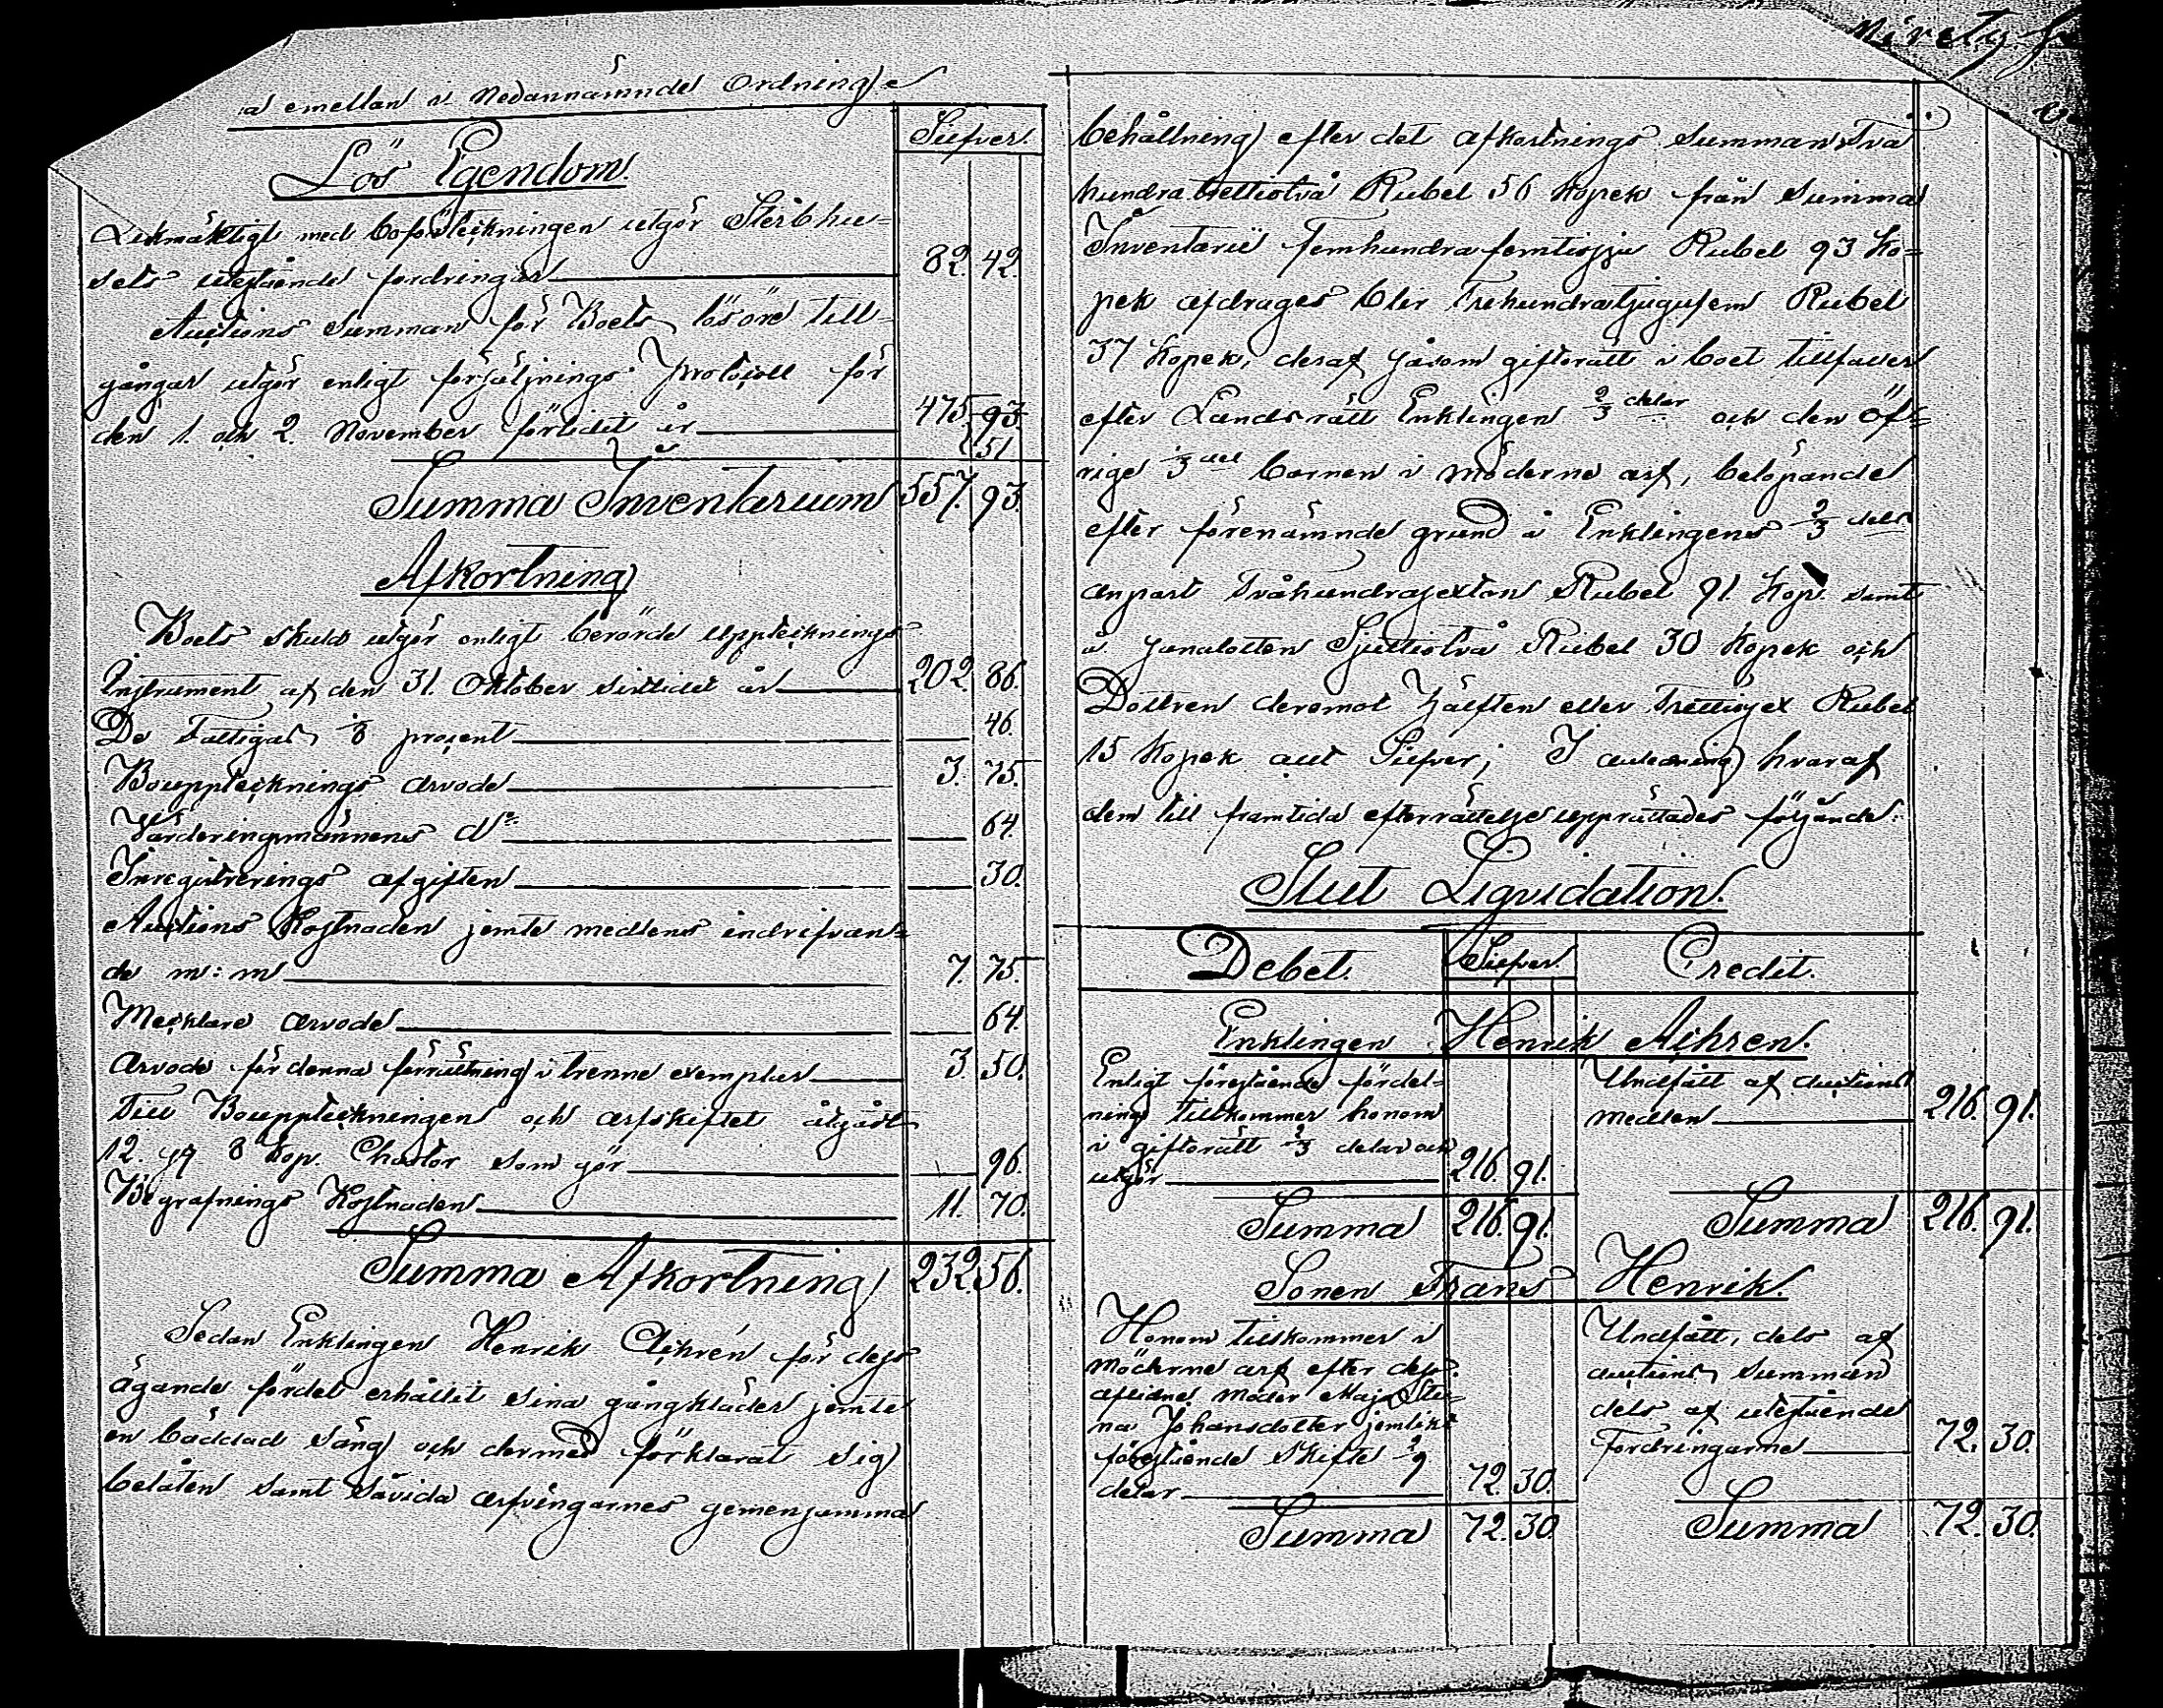 a emellan i nedannämnde Ordning
Silfver.
Lös Egendom.
Likmäktigt med boförteckningen utgör Sterbhu=
sets utestående fordringar 82. 42.
Auctions Summan för Boets lösöre till=
gångar utgör enligt försäljnings Protocoll för
den 1. och 2. November förlidit år 475. 93.
51
Summa Inventarium 557. 93.
Afkortning
Boets skuld utgör enligt berörde Upptecknings
Instrument af den 31. Oktober sistlidit år 202. 86.
De Fattigas 1/8 procent 46.
Boupptecknings arvode 3. 75.
Värderingsmännens do 64.
Inregistrerings afgiften 30.
Auctions Kostnaden jemte medlens indrifvan=
de m:m 7. 75.
Mecklare arvode 64.
Arvode för denna förrättning i trenne exemplar 3. 50.
Till Bouppteckningen och arfskiftet åtgådt
12. 8 Kop. Chartor som gör 96.
Begrafnings Kostnaden 11. 70.
Summa Afkortning 232. 56.
Sedan Enklingen Henrik Aichrén för dess
ägande fördel erhållit sina gångkläder jemte
en bäddad säng och dermed förklarat sig
belåten samt såvida arfvingarnes gemensamma
behållning efter det afkortnings Summan Två
hundra trettiotvå Rubel 56 Kopek från Summa
Inventarii Femhundrafemtiosju Rubel 93 Ko=
pek afdrages blir Trehundratjugufem Rubel
37 Kopek, deraf såsom giftorätt i boet tillfaller
efter Landsrätt Enklingen 2/3 delar och den öf=
rige 1/3 del barnen i möderne arf, belöpande
efter förenämnde grund å Enklingens 2/3 dels
anpart Tvåhundrasexton Rubel 91 Kop. samt
å Sonalotten Sjuttiotvå Rubel 30 Kopek och
Dottren deremot hälften eller Trettiosex Rubel
15 Kopek allt Silfver; I anledning hvaraf
dem till framtida efterrättelse upprättades följande:
Slut Liqvidation.
Debet. Silfver Credit.
Enklingen Henrik Aichren.
Enligt förestående fördel=
ning tillkommer honom
i giftorätt 2/3 delar och
utgör 216. 91.
Undfått af auctions
medlen 216. 91.
Summa 216. 91.
Summa 216. 91.
Sonen Frans Henrik.
Honom tillkommer i
möderne arf efter dess
aflidne moder Maja Sti=
na Johansdotter jemlikt
förestående skifte 2/9
delar 72. 30.
Undfått, dels af
auctions summan
dels af utestående
Fordringarne 72. 30.
Summa 72. 30.
Summa 72. 30.